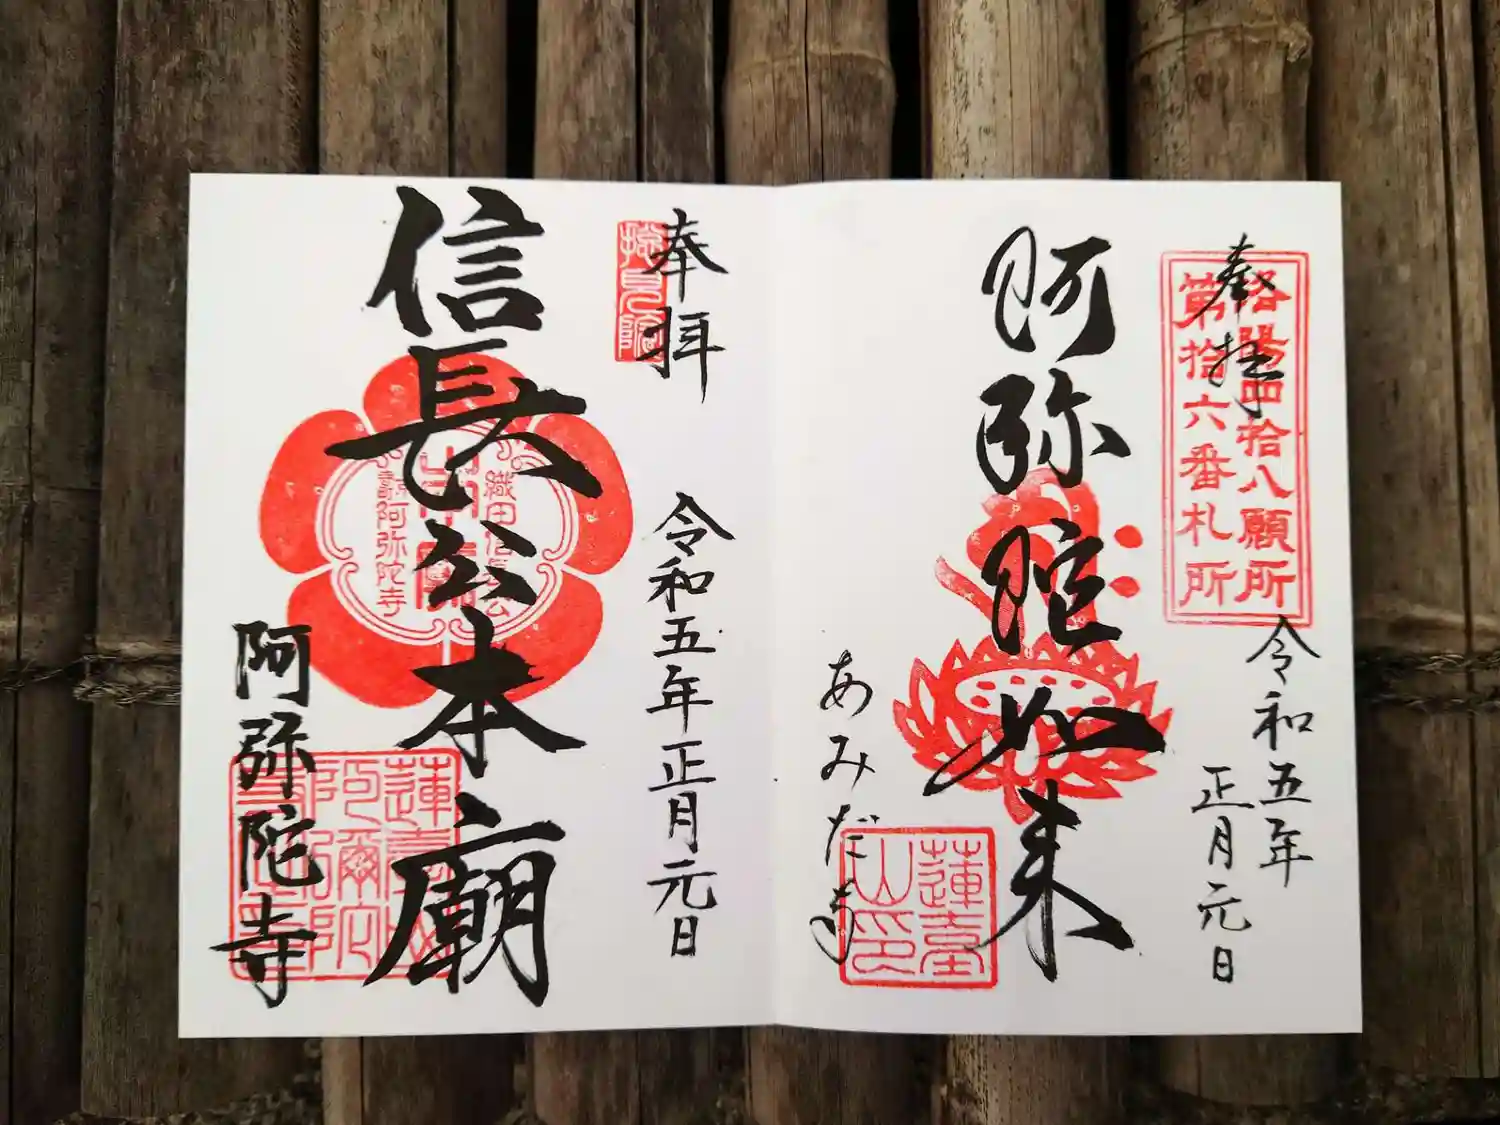 洛陽四拾八願所
第拾六番札所
奉拝
令和五年
正月元日
阿弥陀如来
あみだ寺
蓮臺
山印
奉拝
総見院
令和五年正月元日
信長公本廟
織田信長公
本廟
阿弥陀寺
阿弥陀寺
蓮臺山
阿彌陀